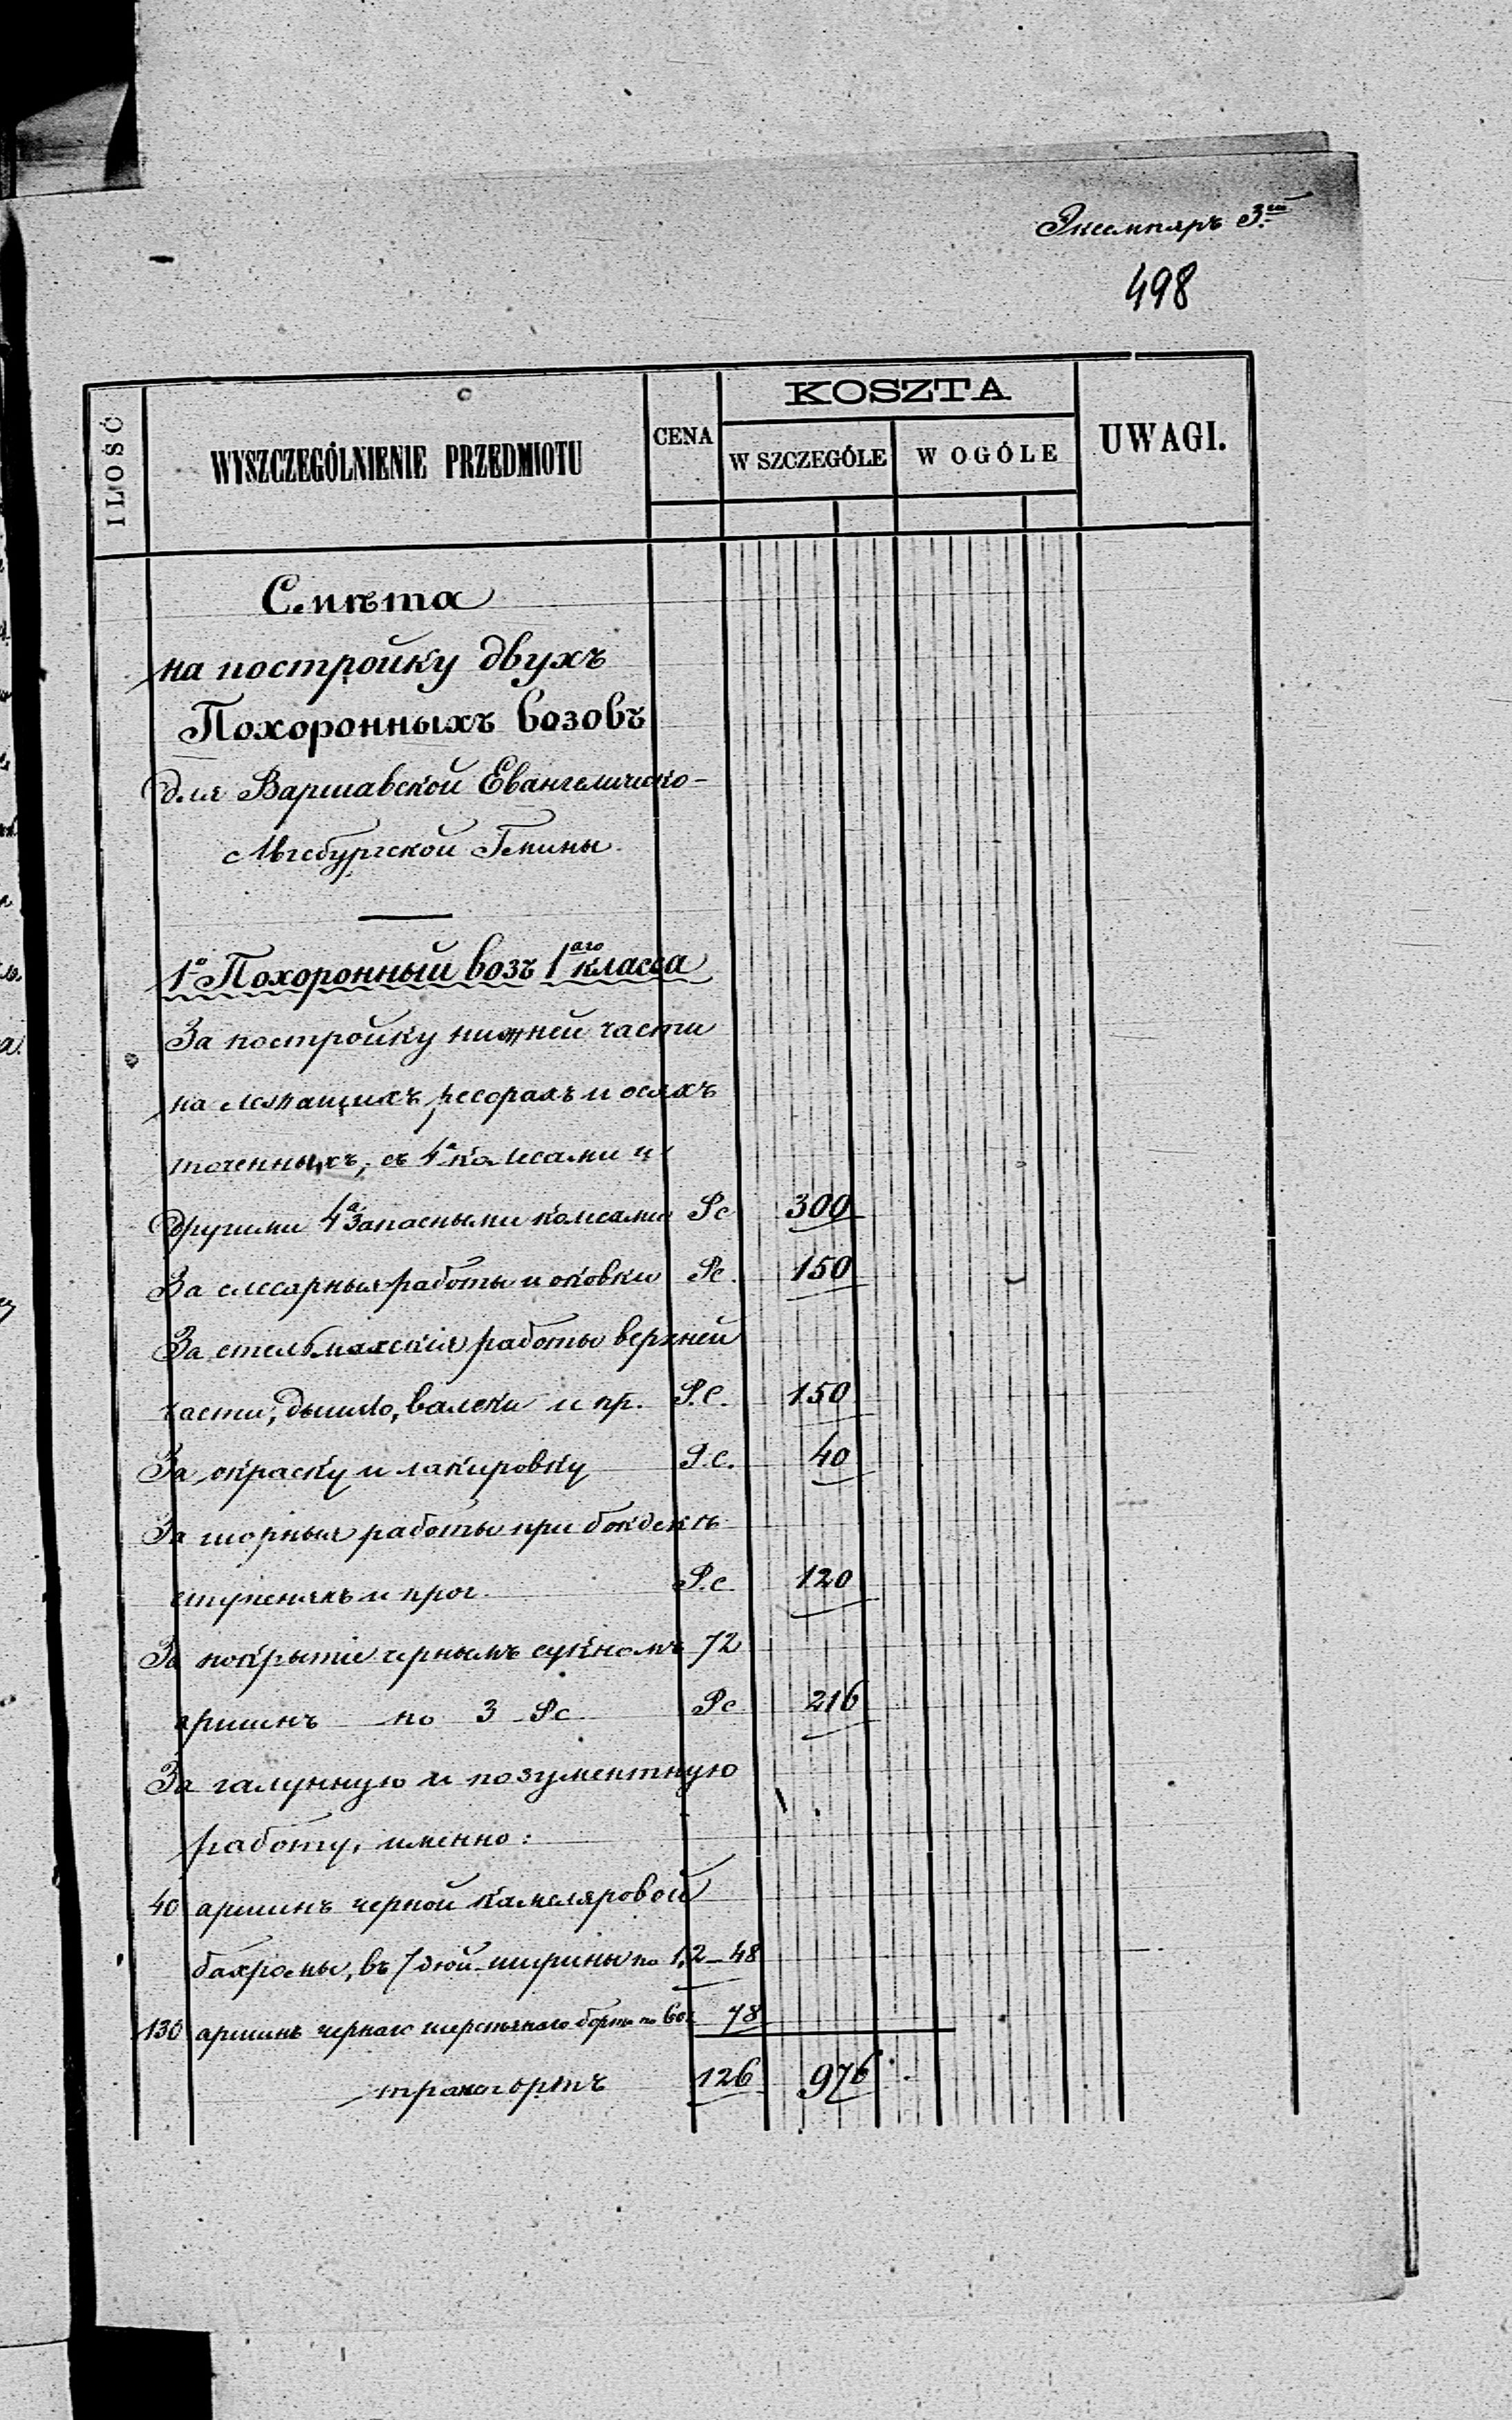 Экземпляръ 3.ій
498
ILOŚĆ
WYSZCZEGÓLNIENIE PRZEDMIOTU
CENA
KOSZTA
W SZCZEGÓLE
W OGÓLE
UWAGI.
Смѣта
на постройку двухъ
Похоронныхъ возовъ
для Варшавской Евангелическо-
Аугсбургской Гмины.
1º Похоронный возъ 1аго класса
За постройку нижней части
на лежащихъ ресорахъ и осяхъ
точенныхъ, съ 4ª колесами и
другими 4ª запасными колесами Рс 300
За слесарныя работы и оковки Рс. 150
За стельмахскія работы верхней
части, дышло, вальки и пр. Р.С. 150
За окраску и лакировку Р.С. 40
За шорныя работы при
ступеняхъ и проч. Р.с. 120
За покрытіе чернымъ сукномъ 72
аршинъ по 3 Рс Рс 216
За галунную и позументную
работу, именно:
40 аршинъ черной камеляровой
бахромы, въ 7 дюй. ширины по 1,2 – 48
130 аршинъ чернаго шерстянаго борта по 60к 78
транспортъ 126 976